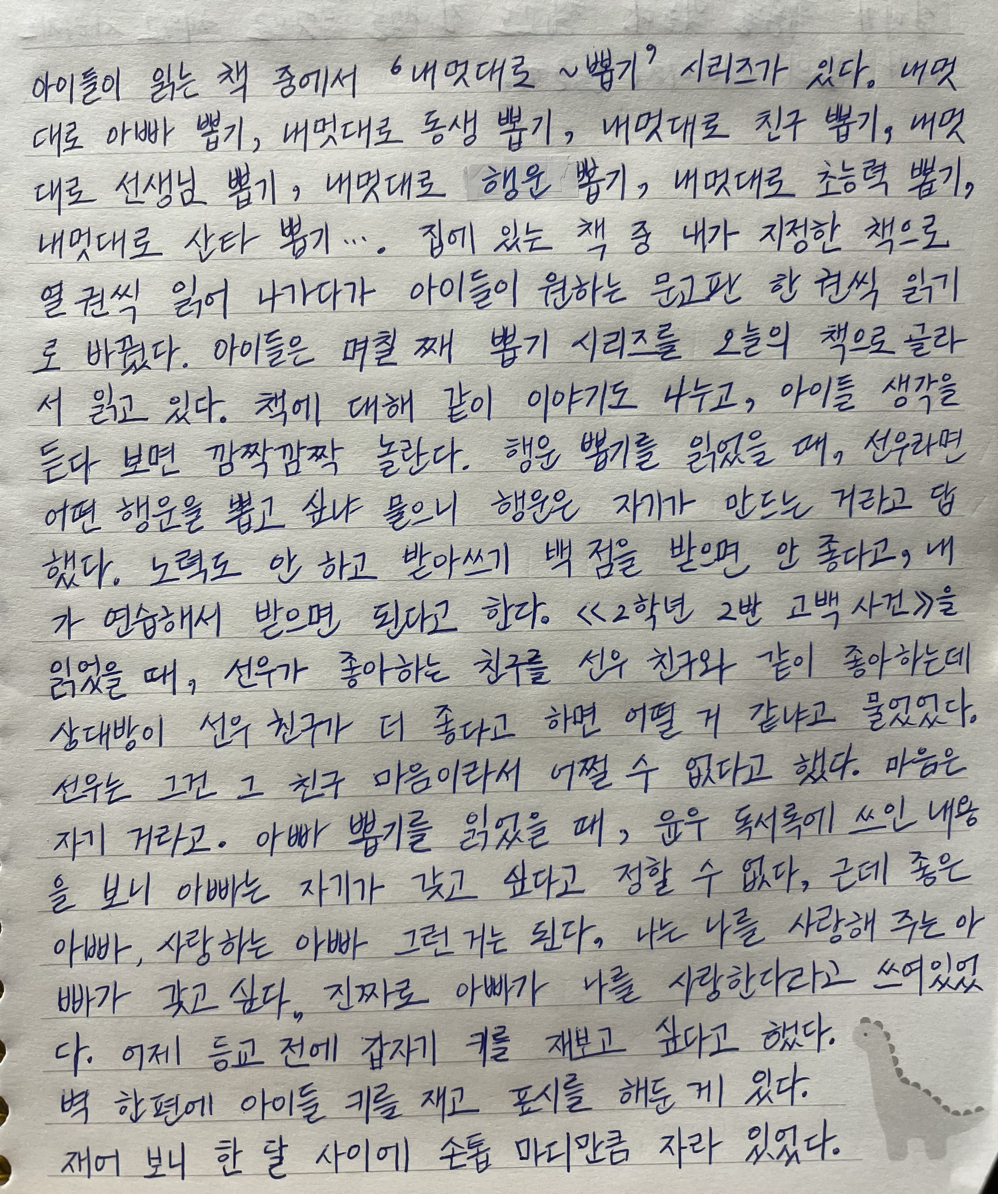 아이들이 읽는 책 중에서 '내멋대로 ~뽑기' 시리즈가 있다. 내멋
대로 아빠 뽑기, 내멋대로 동생 뽑기, 내멋대로 친구 뽑기, 내멋
대로 선생님 뽑기, 내멋대로 행운 뽑기, 내멋대로 초능력 뽑기,
내멋대로 산타 뽑기…. 집에 있는 책 중 내가 지정한 책으로
열 권씩 읽어 나가다가 아이들이 원하는 문고판 한 권씩 읽기
로 바꿨다. 아이들은 며칠 째 뽑기 시리즈를 오늘의 책으로 골라
서 읽고 있다. 책에 대해 같이 이야기도 나누고, 아이들 생각을
듣다 보면 깜짝깜짝 놀란다. 행운 뽑기를 읽었을 때, 선우라면
어떤 행운을 뽑고 싶냐 물으니 행운은 자기가 만드는 거라고 답
했다. 노력도 안 하고 받아쓰기 백 점을 받으면 안 좋다고, 내
가 연습해서 받으면 된다고 한다. 《2학년 2반 고백 사건》을
읽었을 때, 선우가 좋아하는 친구를 선우 친구와 같이 좋아하는데
상대방이 선우 친구가 더 좋다고 하면 어떨 거 같냐고 물었었다.
선우는 그건 그 친구 마음이라서 어쩔 수 없다고 했다. 마음은
자기 거라고. 아빠 뽑기를 읽었을 때, 윤우 독서록에 쓰인 내용
을 보니 아빠는 자기가 갖고 싶다고 정할 수 없다, 근데 좋은
아빠, 사랑하는 아빠 그런 거는 된다, 나는 나를 사랑해 주는 아
빠가 갖고 싶다„ 진짜로 아빠가 나를 사랑한다라고 쓰여있었
다. 어제 등교 전에 갑자기 키를 재보고 싶다고 했다.
벽 한편에 아이들 키를 재고 표시를 해둔 게 있다.
재어 보니 한 달 사이에 손톱 마디만큼 자라 있었다.